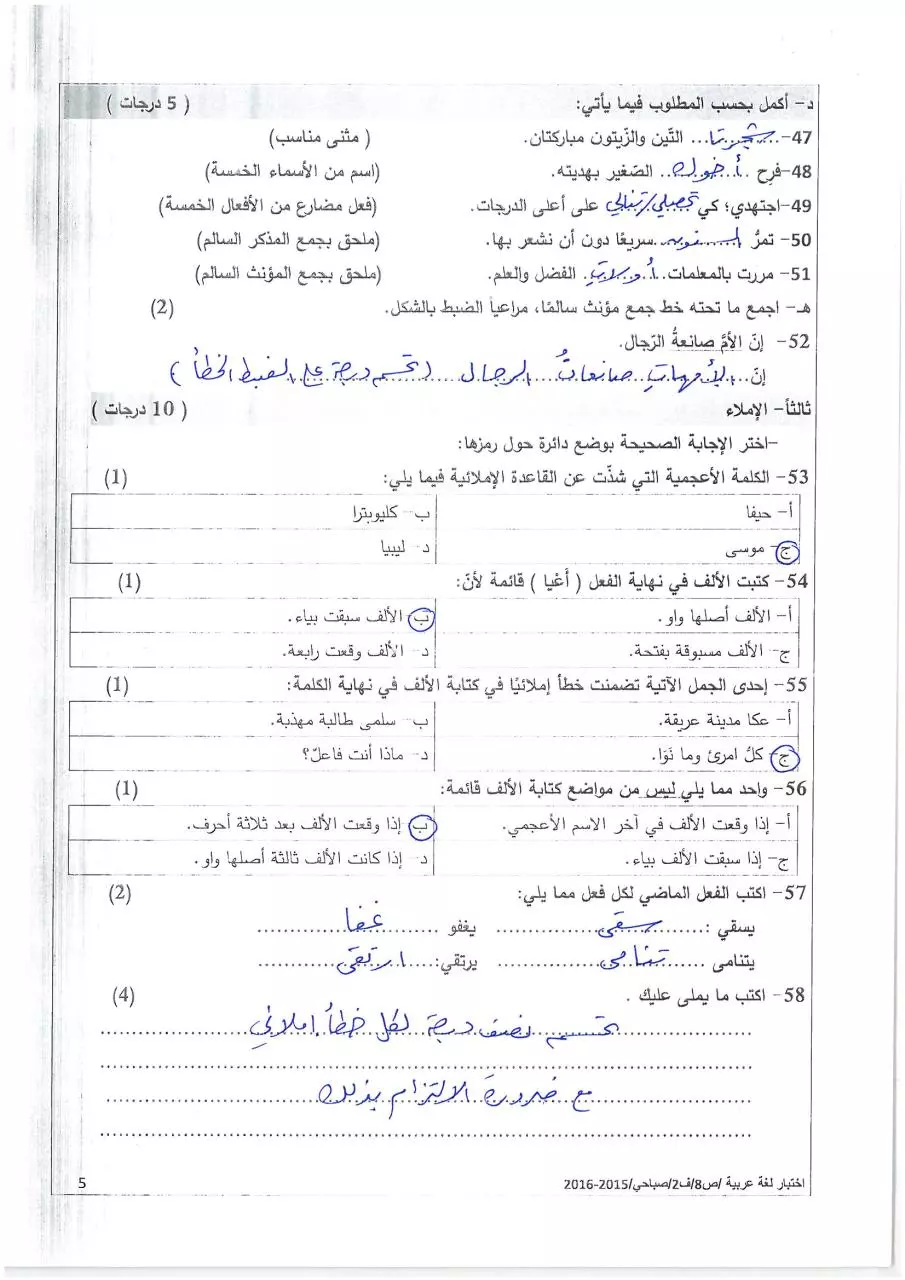 د- أكمل بحسب المطلوب فيما يأتي: ( 5 درجات )
47- شجرتا التّين والزّيتون مباركتان. ( مثنى مناسب)
48- فرح أخوك الصّغير بهديته. (اسم من الأسماء الخمسة)
49- اجتهدي؛ كي تحصلي/تنالي على أعلى الدرجات. (فعل مضارع من الأفعال الخمسة)
50- تمرُّ السنون سريعًا دون أن نشعر بها. (ملحق بجمع المذكر السالم)
51- مررت بالمعلمات أولات الفضل والعلم. (ملحق بجمع المؤنث السالم)
هـ- اجمع ما تحته خط جمع مؤنث سالمًا، مراعياً الضبط بالشكل. (2)
52- إنّ الأمَّ صانعةُ الرّجال.
إنّ الأمهاتِ صانعاتُ الرجال (تحسم درجة على الضبط الخطأ)
ثالثاً- الإملاء ( 10 درجات)
-اختر الإجابة الصحيحة بوضع دائرة حول رمزها:
53- الكلمة الأعجمية التي شذّت عن القاعدة الإملائية فيما يلي: (1)
أ- حيفا ب- كليوبترا
ج- موسى د- ليبيا
54- كتبت الألف في نهاية الفعل ( أعْيا ) قائمة لأنّ: (1)
أ- الألف أصلها واو. ب- الألف سبقت بياء.
ج- الألف مسبوقة بفتحة. د- الألف وقعت رابعة.
55- إحدى الجمل الآتية تضمنت خطأ إملائيًا في كتابة الألف في نهاية الكلمة: (1)
أ- عكا مدينة عريقة. ب- سلمى طالبة مهذبة.
ج- كلّ امرئ وما نَوَا. د- ماذا أنت فاعلٌ؟
56- واحد مما يلي ليس من مواضع كتابة الألف قائمة: (1)
أ- إذا وقعت الألف في آخر الاسم الأعجمي. ب- إذا وقعت الألف بعد ثلاثة أحرف.
ج- إذا سبقت الألف بياء. د- إذا كانت الألف ثالثة أصلها واو.
57- اكتب الفعل الماضي لكل فعل مما يلي: (2)
يسقي : سقى يغفو غفا
يتنامى تنامى يرتقي: ارتقى
58- اكتب ما يملى عليك . (4)
تحسم نصف درجة لكل خطأ إملائي
مع ضرورة الالتزام بذلك
اختبار لغة عربية /ص8/ف2/صباحي/2015-2016 5